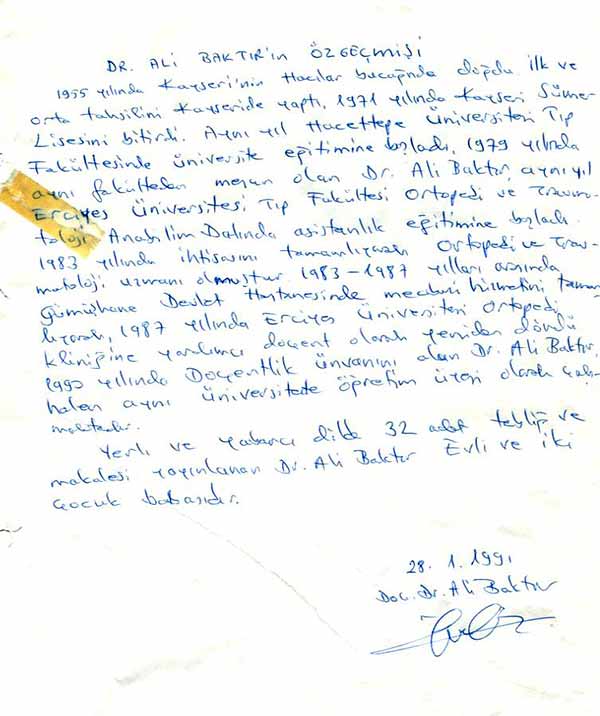 DR. ALİ BAKTIR'ın ÖZGEÇMİŞİ
1955 yılında Kayseri'nin Hacılar bucağında doğdu. İlk ve
orta tahsilini Kayseride yaptı, 1971 yılında Kayseri Sümer
Lisesini bitirdi. Aynı yıl Hacettepe Üniversitesi Tıp
Fakültesinde üniversite eğitimine başladı, 1979 yılında
aynı fakülteden mezun olan Dr. Ali Baktır, aynı yıl
Erciyes Üniversitesi Tıp Fakültesi Ortopedi ve Travma-
toloji Anabilim Dalında asistanlık eğitimine başladı.
1983 yılında ihtisasını tamamlıyarak Ortopedi ve Trav-
matoloji uzmanı olmuştur 1983-1987 yılları arasında
Gümüşhane Devlet Hastanesinde mecburi hizmetini tamam-
lıyarak, 1987 yılında Erciyes Üniversitesi Ortopedi
kliniğine yardımcı doçent olarak yeniden döndü
1990 yılında Doçentlik ünvanını alan Dr. Ali Baktır,
halen aynı üniversitede öğretim üyesi olarak çalış-
maktadır.
Yerli ve yabancı dilde 32 adet tebliğ ve
makalesi yayınlanan Dr. Ali Baktır Evli ve iki
çocuk babasıdır.
28.1.1991
Doç. Dr. Ali Baktır